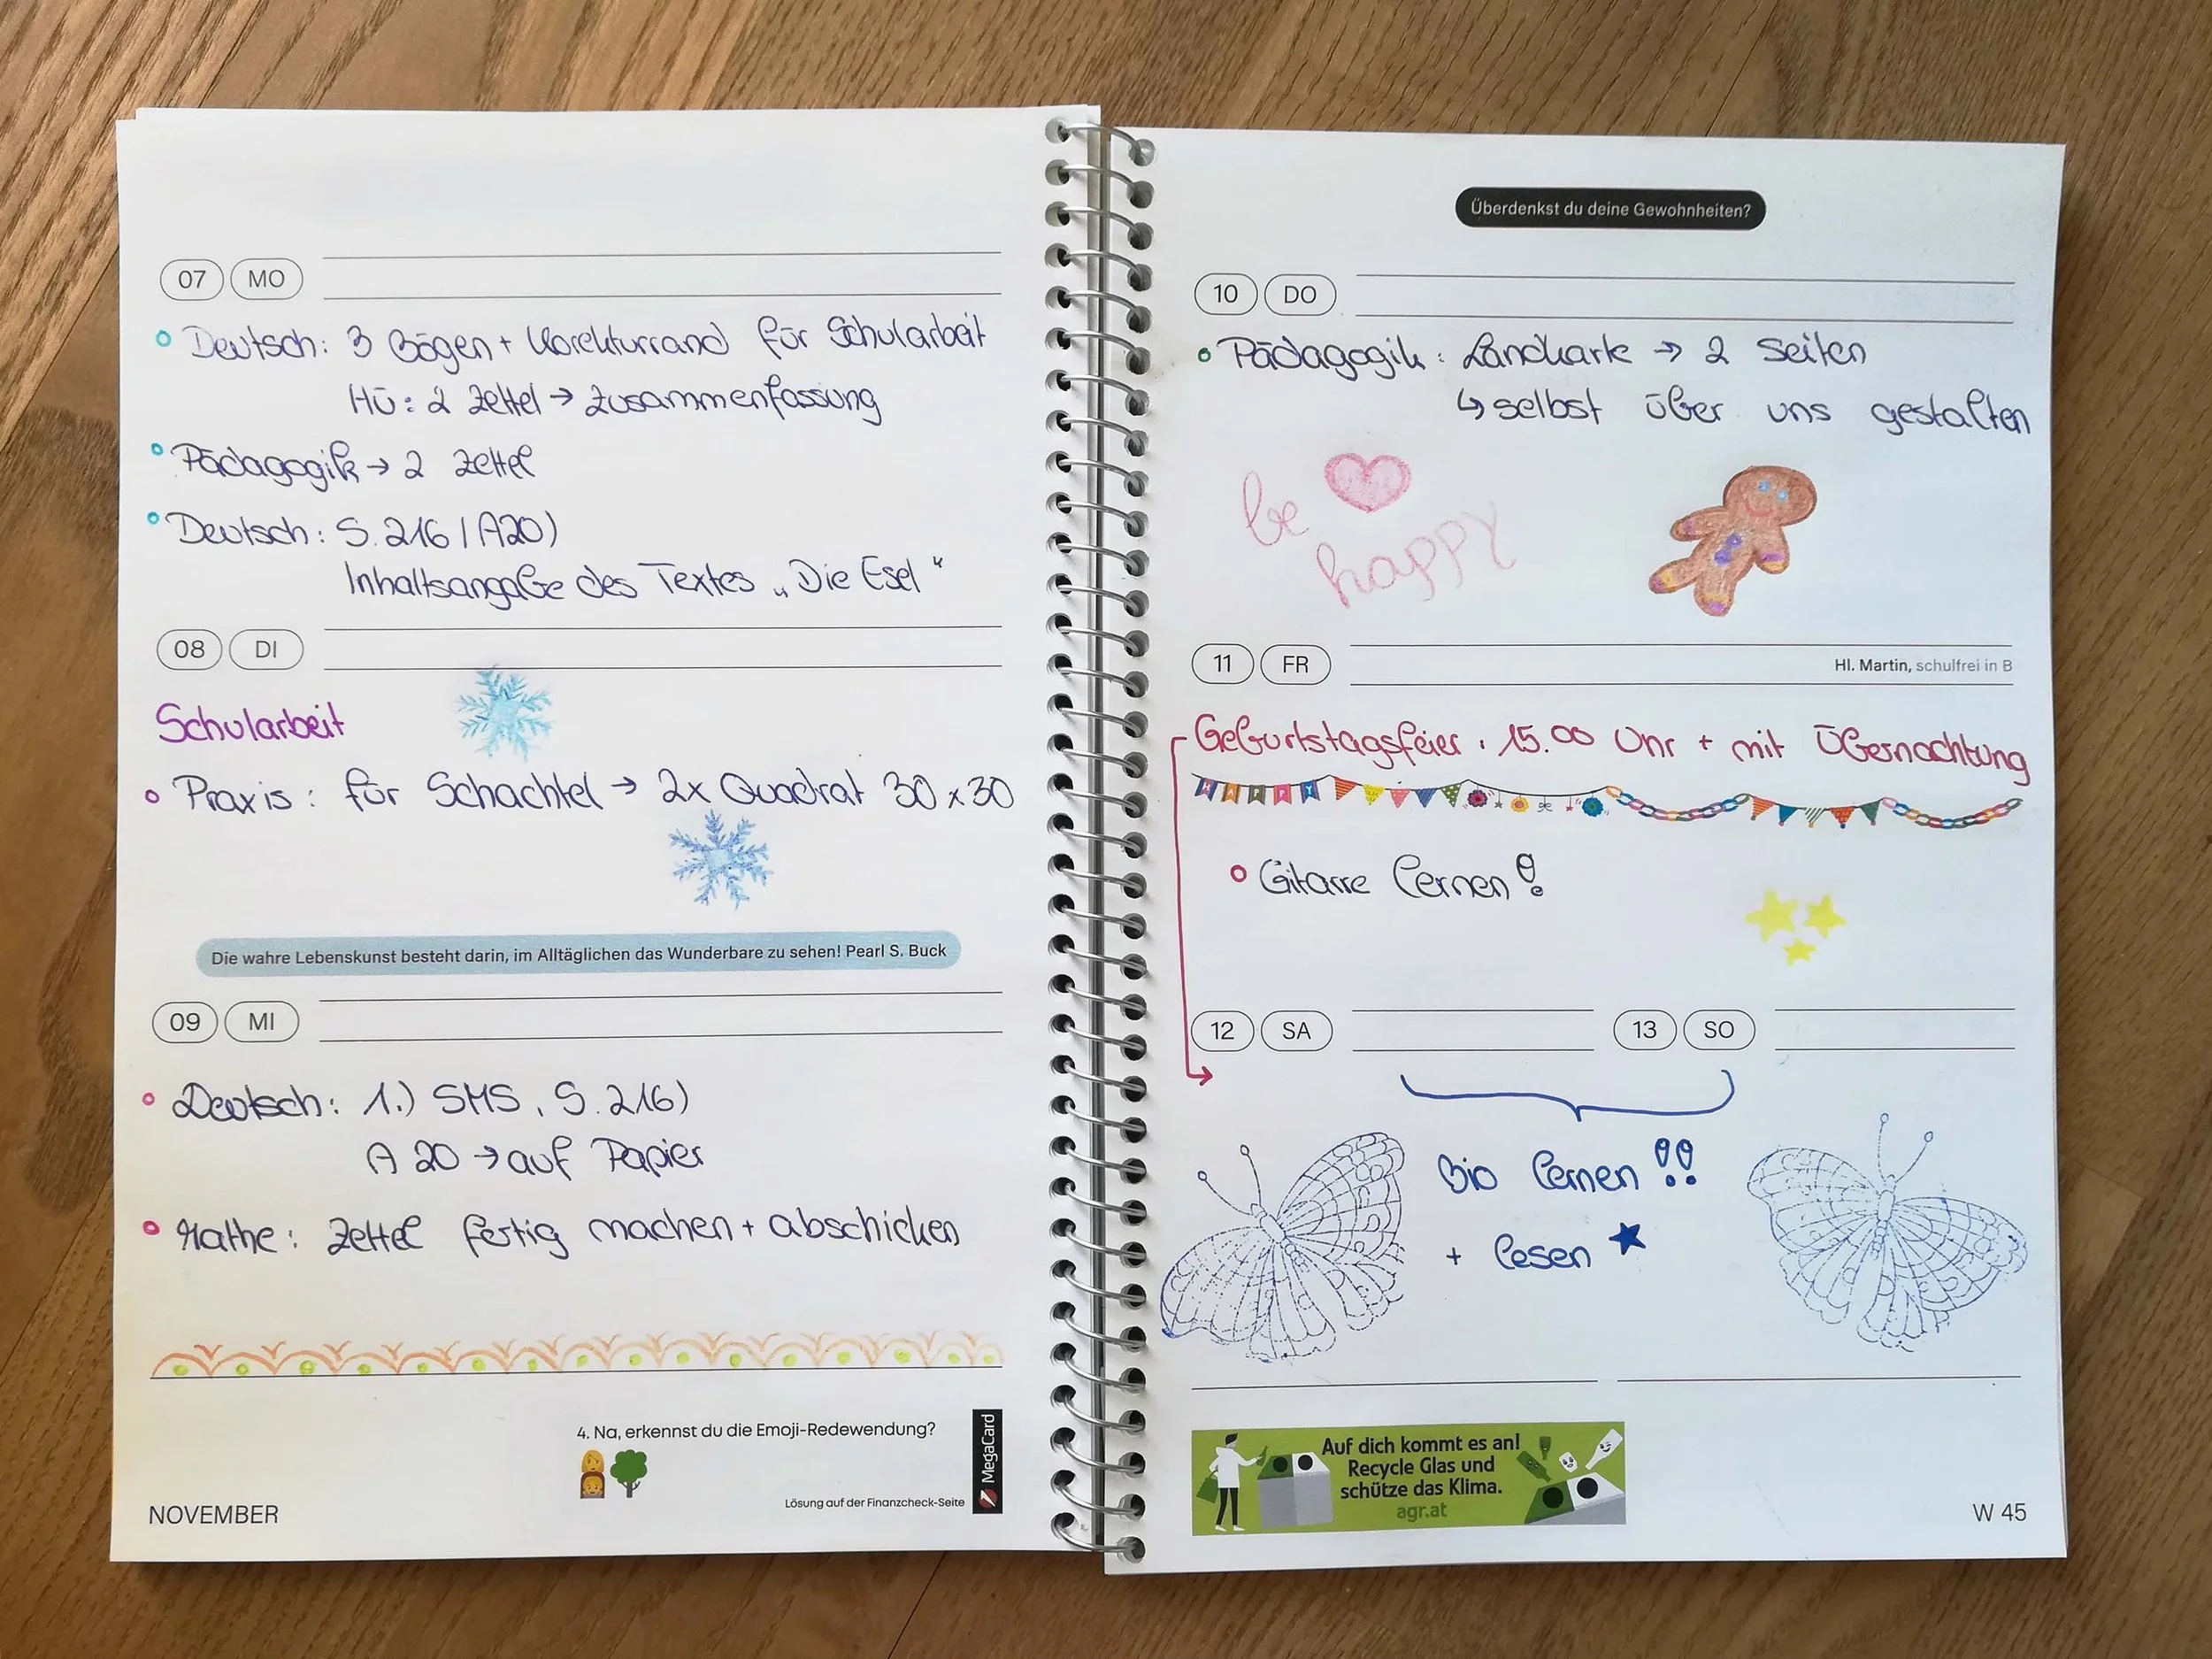 07 MO
Deutsch: 3 Bögen + Korekturrand für Schularbeit
HÜ: 2 Zettel → Zusammenfassung
Pädagogik → 2 Zettel
Deutsch: S. 216 / A20)
Inhaltsangabe des Textes „Die Esel“
08 DI
Schularbeit
Praxis: für Schachtel → 2x Quadrat 30 x 30
Die wahre Lebenskunst besteht darin, im Alltäglichen das Wunderbare zu sehen! Pearl S. Buck
09 MI
Deutsch: 1.) SMS, S. 216)
A 20 → auf Papier
Mathe: Zettel fertig machen + abschicken
4. Na, erkennst du die Emoji-Redewendung?
Lösung auf der Finanzcheck-Seite
MegaCard
NOVEMBER
Überdenkst du deine Gewohnheiten?
10 DO
Pädagogik: Landkarte → 2 Seiten
↳ selbst über uns gestalten
be
happy
11 FR
Hl. Martin, schulfrei in B
Geburtstagsfeier, 15.00 Uhr + mit Übernachtung
HAPPY
Gitarre lernen!
12 SA 13 SO
Bio lernen!!
+ lesen
Auf dich kommt es an!
Recycle Glas und
schütze das Klima.
agr.at
W 45